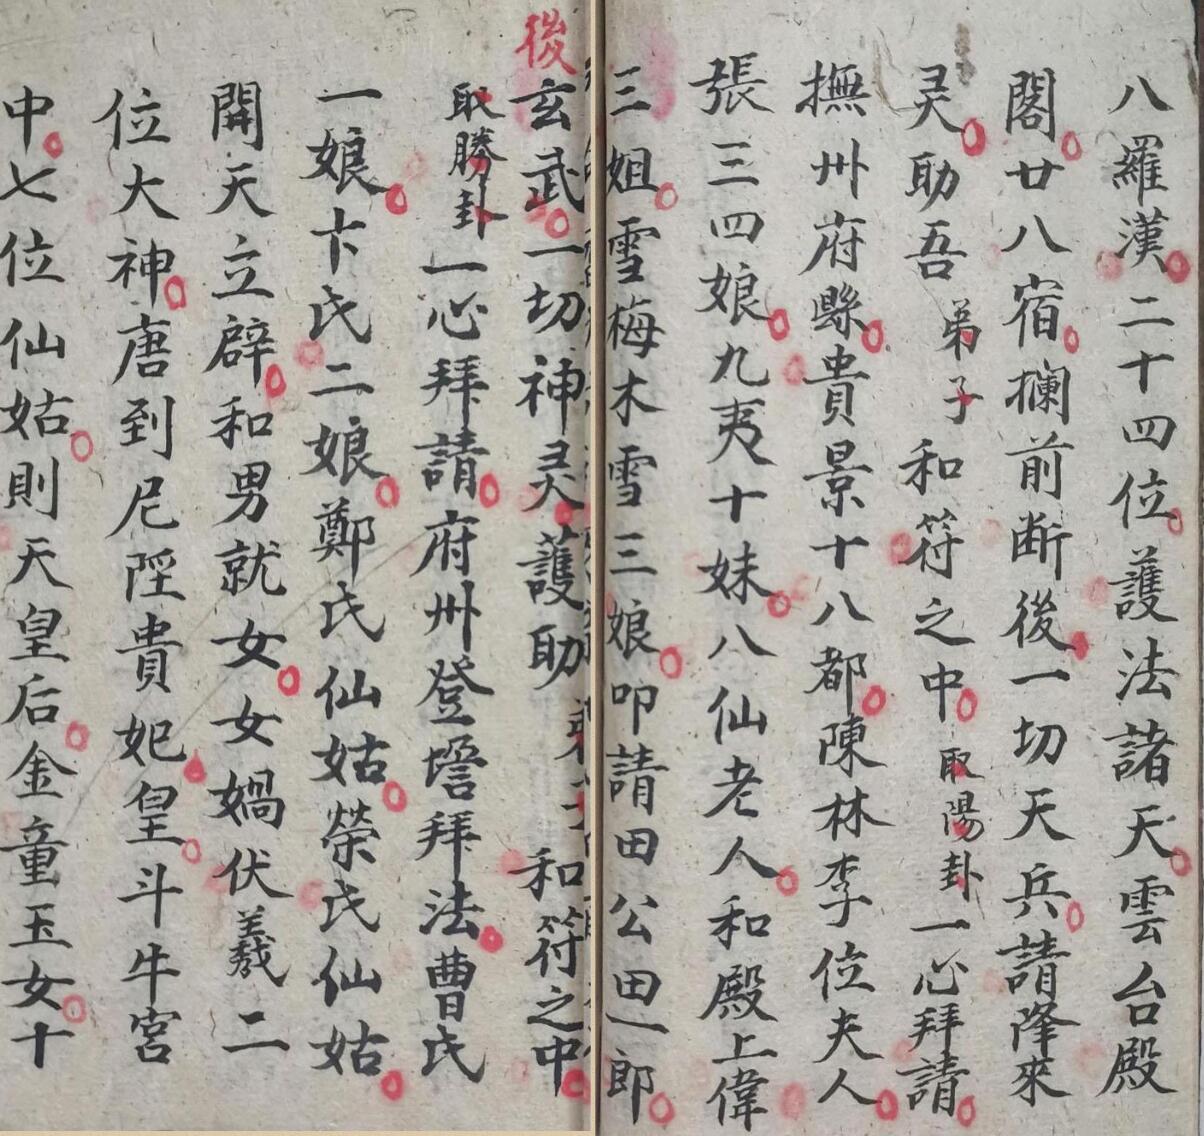 八羅漢二十四位護法諸天雲台殿
閣廿八宿攔前断後一切天兵請降來
灵助吾弟子和符之中取陽卦一心拜請
撫州府縣貴景十八都陳林李位夫人
張三四娘九夷十妹八仙老人和殿上偉
三姐雪梅木雪三娘叩請田公田一郎
後玄武一切神灵護助弟子和符之中
取勝卦一心拜請府州登壇拜法曹氏
一娘卞氏二娘鄭氏仙姑荣氏仙姑
開天立辟和男就女女媧伏羲二
位大神唐到尼陘貴妃皇斗牛宮
中七位仙姑則天皇后金童玉女十